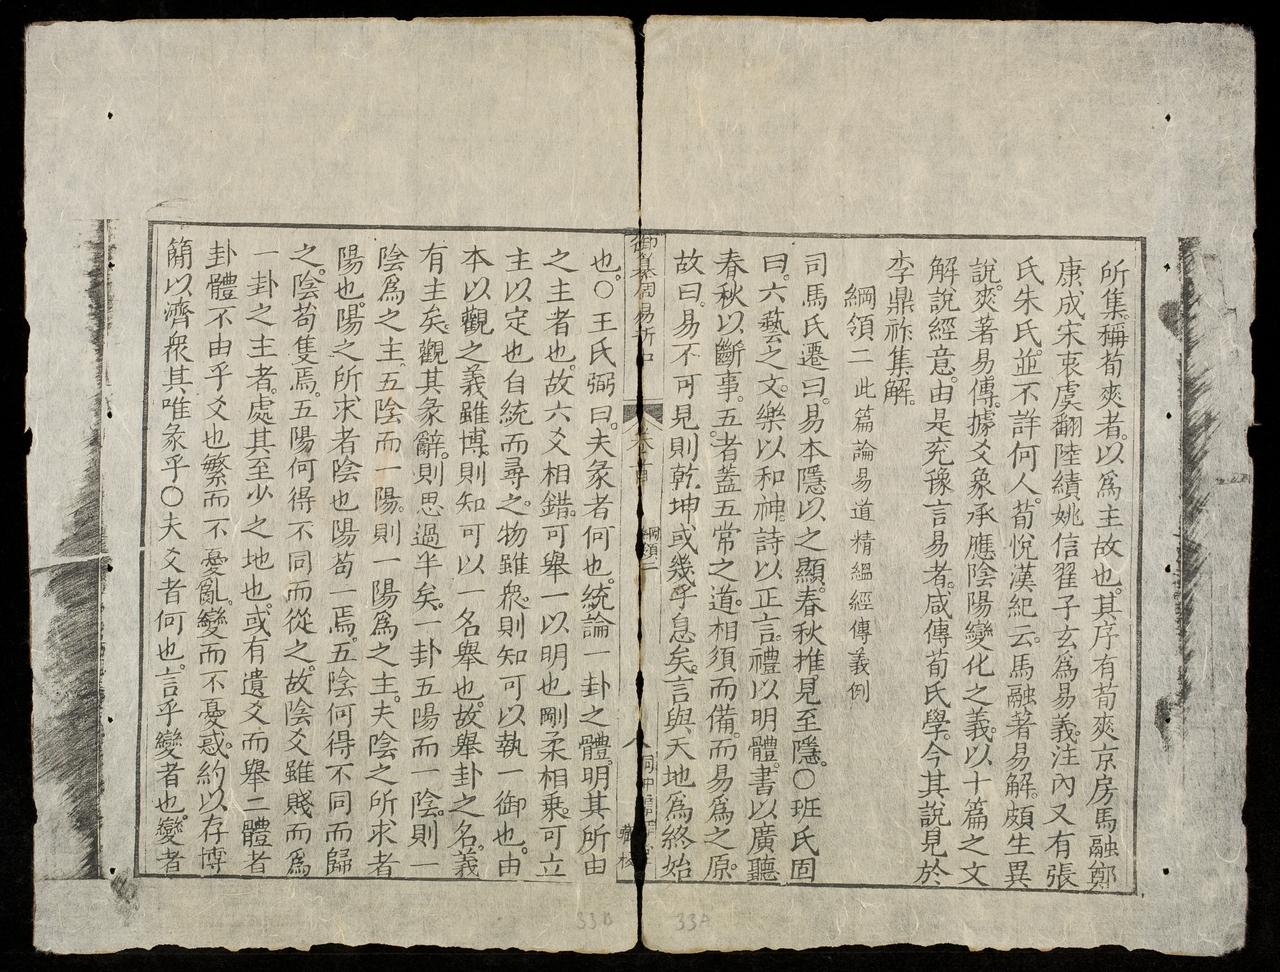 所集稱荀爽者以爲主故也其序有荀爽京房馬融鄭
康成宋衷虞翻陸績姚信翟子玄爲易義注內又有張
氏朱氏並不詳何人荀悅漢紀云馬融著易解頗生異
說爽著易傳據爻象承應陰陽變化之義以十篇之文
解說經意由是兗豫言易者咸傳荀氏學今其說見於
李鼎祚集解
綱領二此篇論易道精縕經傳義例
司馬氏遷曰易本隱以之顯春秋推見至隱○班氏固
曰六藝之文樂以和神詩以正言禮以明體書以廣聽
春秋以斷事五者蓋五常之道相須而備而易爲之原
故曰易不可見則乾坤或幾乎息矣言與天地爲終始
御纂周易折中
卷首
綱領二
八
也○王氏弼曰夫彖者何也統論一卦之體明其所由
之主者也故六爻相錯可舉一以明也剛柔相乘可立
主以定也自統而尋之物雖衆則知可以執一御也由
本以觀之義雖博則知可以一名舉也故舉卦之名義
有主矣觀其彖辭則思過半矣一卦五陽而一陰則一
陰爲之主五陰而一陽則一陽爲之主夫陰之所求者
陽也陽之所求者陰也陽苟一焉五陰何得不同而歸
之陰苟隻焉五陽何得不同而從之故陰爻雖賤而爲
一卦之主者處其至少之地也或有遺爻而舉二體者
卦體不由乎爻也繁而不憂亂變而不憂惑約以存博
簡以濟衆其唯彖乎○夫爻者何也言乎變者也變者
33B
33A